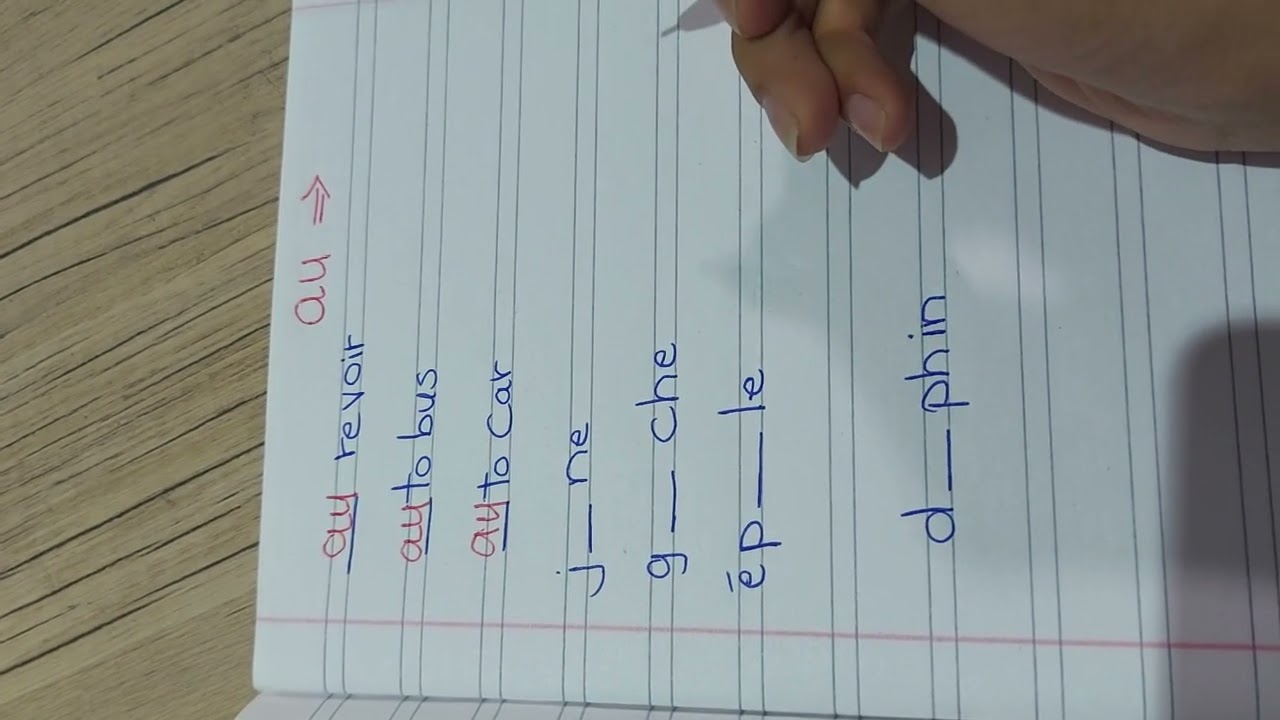 au ⇒
au revoir
auto bus
auto car
j__ne
g__che
ēp__le
d__phin